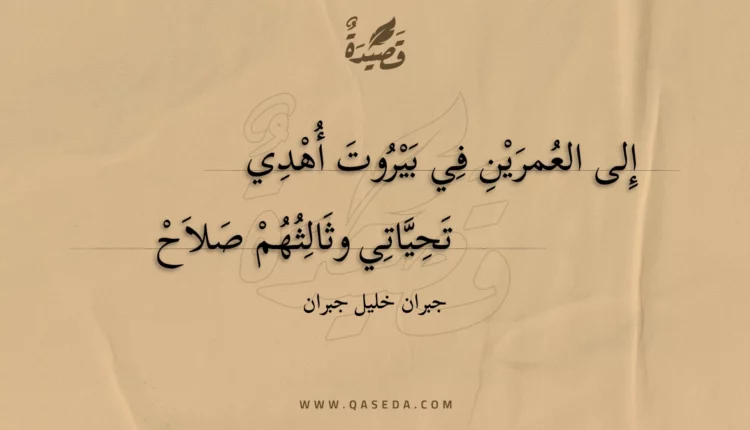 قَصِيدَةٌ
إِلى العُمرَيْنِ فِي بَيْرُوتَ أُهْدِي
تَحِيَّاتِي وثَالِثُهُمْ صَلاَحْ
جبران خليل جبران
WWW.QASEDA.COM